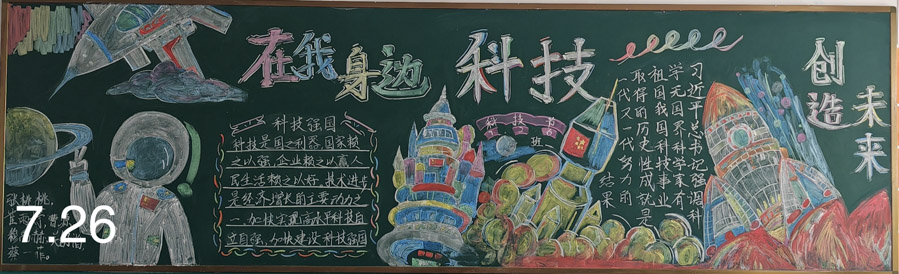 在我身边 科技
创造未来
科技强国
科技是国之利器,国家赖
之以强,企业赖之以赢,人
民生活赖之以好,技术进步
是经济增长的主要动力之
一,加快实现高水平科技自
立自强,加快建设科技强国
科技节
班
习近平总书记强调科
学无国界科学家有
祖国我国科技事业
取得的历史性成就是
一代又一代努力的
结果
7.26